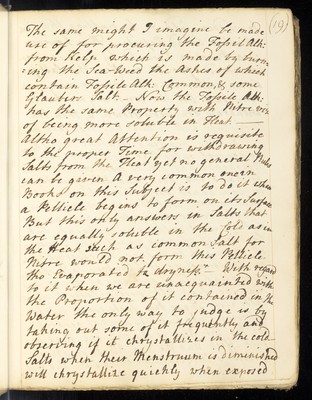 (19)
The same might I imagine be made
use of for procuring the Fossile Alk:
from Kelp which is made by burn
=ing the Sea-Weed the Ashes of which
contain Fossile Alk. Common, & some
Glaubers Salt. Now the Fossile Alk:
has the same Property with Nitre viz
of being more soluble in Heat
Altho great Attention is requisite
to the proper Time for withdrawing
Salts from the Heat yet no general Rules
can be given A very common one in
Books on this Subject is to do it when
a Pellicle begins to form on its Surface
But this only answers in Salts that
are equally soluble in the Cold as in
the Heat such as common Salt for
Nitre would not form this Pellicle
tho Evaporated to dryness. With regard
to it when we are unacquainted with
the Proportion of it contained in the
Water the only way to judge is by
taking out some of it frequently and
observing if it chrystallizes in the cold
Salts when their Menstruum is diminished
will chrystallize quickly when exposed